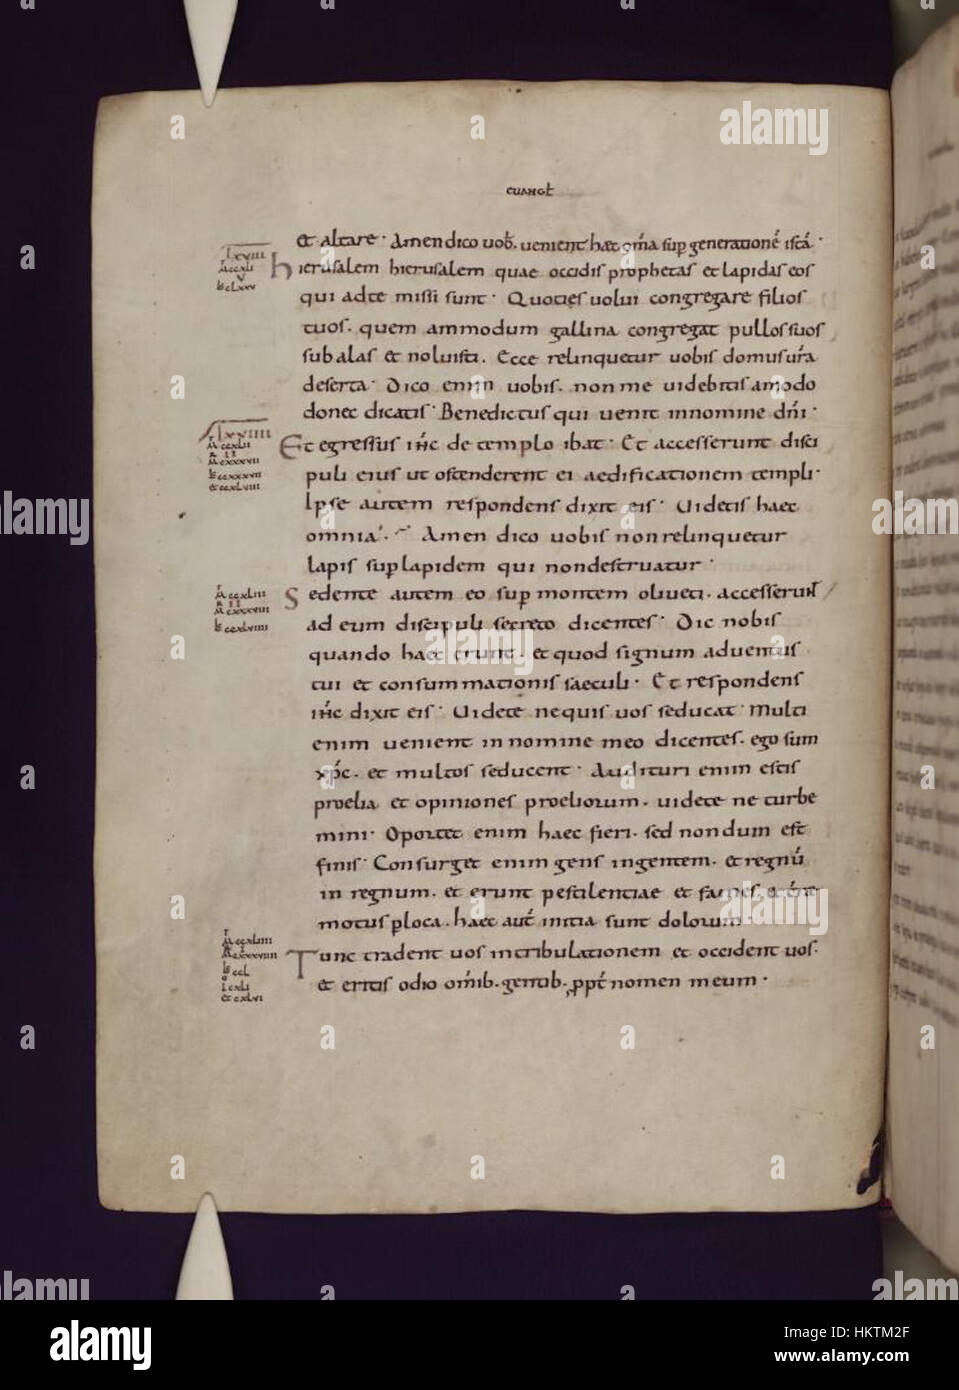 EUANGƚ
et altare· Amen dico uob̄. uenient haec om̄a sup̄ generationē istā·
hierusalem hierusalem quae occidis prophetas et lapidas eos
qui adte missi sunt· Quoties uolui congregare filios
tuos. quem ammodum gallina congregat pullos suos
sub alas et noluisti. Ecce relinquetur uobis domus ur̄a
deserta· Dico enim uobis. non me uidebitis amodo
donec dicatis· Benedictus qui uenit innomine dn̄i·
Et egressus ih̄c de templo ibat· Et accesserunt disci
puli eius ut ostenderent ei aedificationem templi·
Ipse autem respondens dixit eis· Uidetis haec
omnia· Amen dico uobis non relinquetur
lapis sup̄ lapidem qui nondestruatur·
Sedente autem eo sup̄ montem oliueti. accesserunt
ad eum discipuli secreto dicentes· Dic nobis
quando haec erunt. et quod signum aduentus
tui et consummationis saeculi· Et respondens
ih̄c dixit eis· Uidete nequis uos seducat· Multi
enim uenient in nomine meo dicentes. ego sum
xp̄c. et multos seducent· Audituri enim estis
proelia et opiniones proeliorum. uidete ne turbe
mini· Oportet enim haec fieri. sed nondum est
finis· Consurget enim gens ingentem. et regnū
in regnum. et erunt pestilentiae et fames. et
motus ploca. haec aut̄ initia sunt dolorum·
Tunc tradent uos intribulationem et occident uos.
et eritis odio om̄ib. gentib. ppt̄ nomen meum·
lxxiiii
M ccxli
Lc clxxv
M ccxlii
Lc ccxlviii
alamy
HKTM2F
www.alamy.com